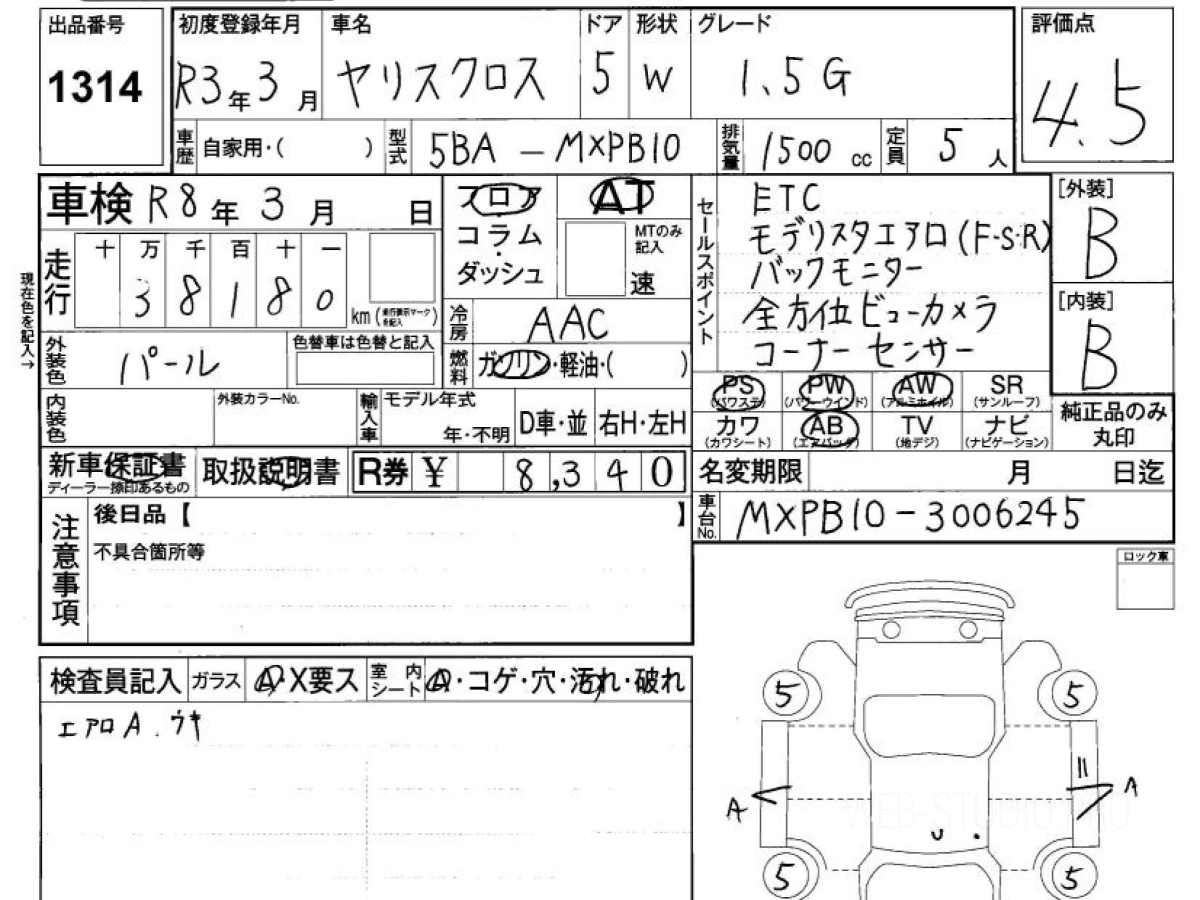 出品番号 1314
初度登録年月 R3年3月
車名 ヤリスクロス
ドア 5
形状 W
グレード 1.5G
評価点 4.5
車歴 自家用・( )
型式 5BA-MXPB10
排気量 1500cc
定員 5人
車検 R8年3月 日
フロア・コラム・ダッシュ
AT
MTのみ記入 速
セールスポイント
ETC
モデリスタエアロ(F・S・R)
バックモニター
全方位ビューカメラ
コーナーセンサー
[外装] B
[内装] B
現在色を記入→
走行 十万千百十一
38180 km (走行表示マークを記入)
冷房 AAC
外装色 パール
色替車は色替と記入
燃料 ガソリン・軽油・( )
PS (パワステ)
PW (パワーウインド)
AW (アルミホイル)
SR (サンルーフ)
カワ (カワシート)
AB (エアバッグ)
TV (地デジ)
ナビ (ナビゲーション)
純正品のみ丸印
内装色
外装カラーNo.
輸入車
モデル年式 年・不明
D車・並
右H・左H
新車保証書
ディーラー捺印あるもの
取扱説明書
R券 ¥ 8,340
名変期限 月 日迄
注意事項
後日品【 】
不具合箇所等
車台No. MXPB10-3006245
ロック車
検査員記入
ガラス A・X要ス
室内シート A・コゲ・穴・汚れ・破れ
エアロA.ウキ
5 5
A A
WEB-STUDIO.RU
5 5